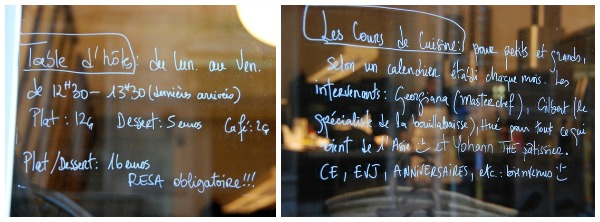 Table d'hôtes: du Lun. au Ven.
de 12H30 - 13H30 (dernières arrivées)
Plat: 12€ Dessert: 5 euros Café: 2€
Plat/Dessert: 16 euros
RESA obligatoire!!!
Les Cours de Cuisine: pour petits et grands,
selon un calendrier établi chaque mois. Les
intervenants: Georgiana (Masterchef), Gilbert (le
spécialiste de la bouillabaisse), Hué pour tout ce qui
vient de l'Asie :) et Yohann THE pâtissier.
CE, EVJ, ANNIVERSAIRES, etc.: bienvenus :)